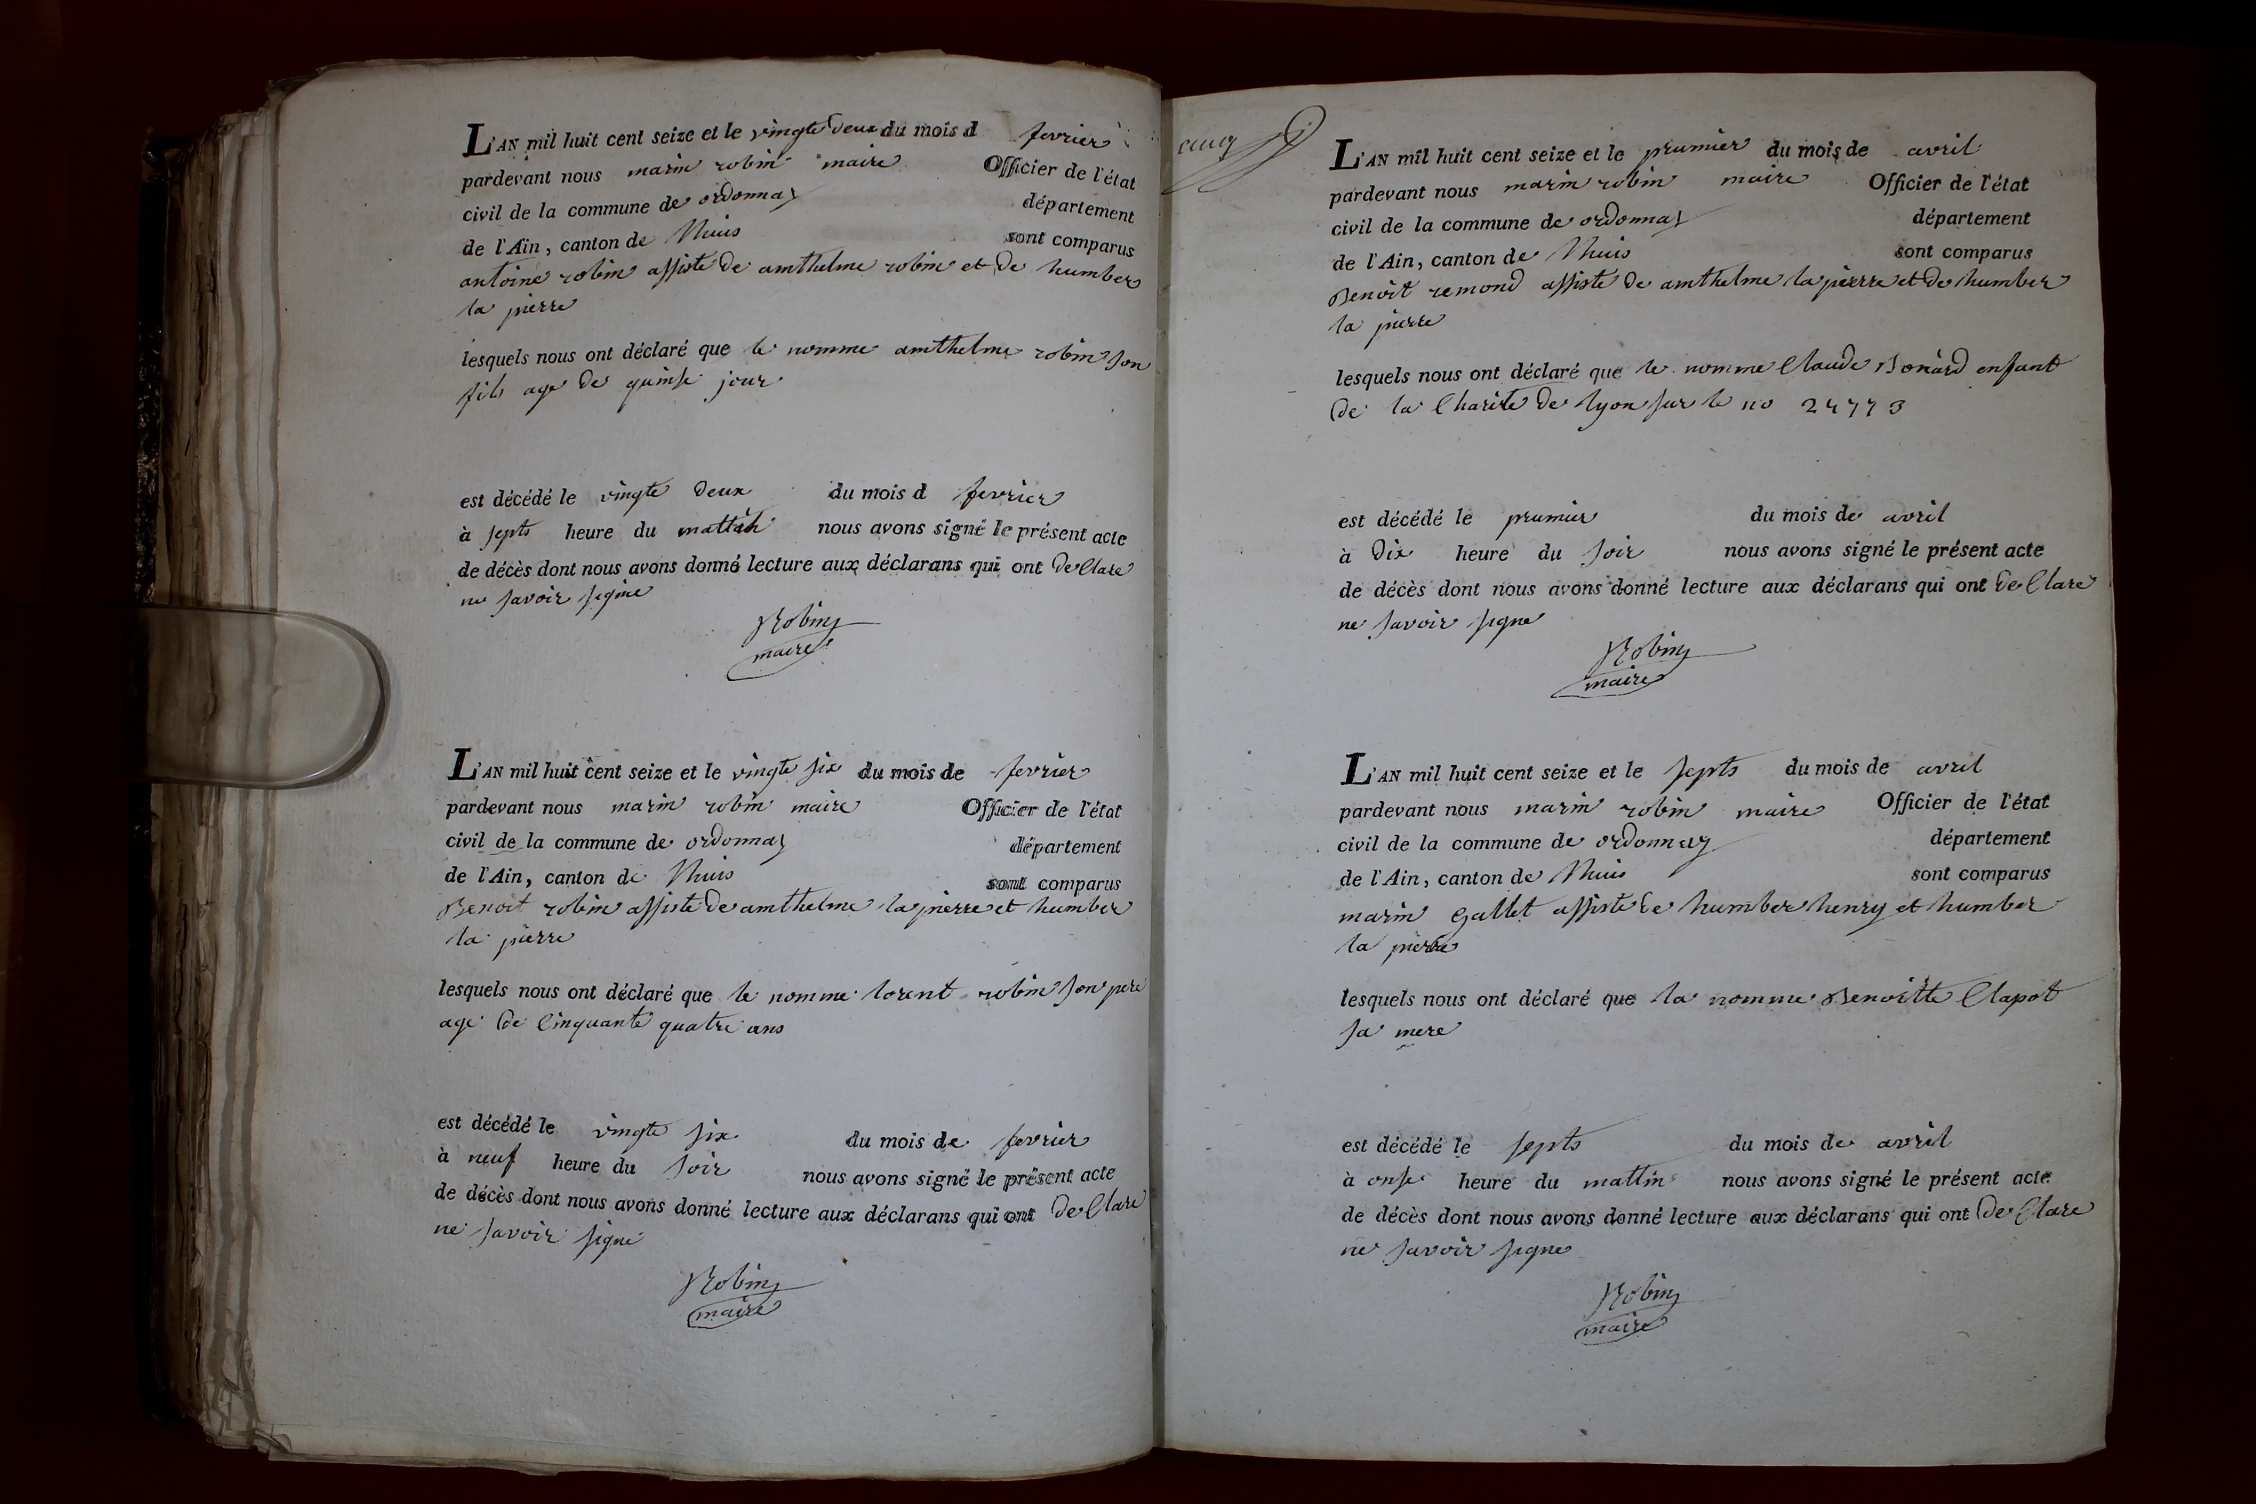 L'AN mil huit cent seize et le vingte deux du mois d fevrier
pardevant nous marin robin maire Officier de l'état
civil de la commune de ordonnay département
de l'Ain, canton de lhuis sont comparus
antoine robin assisté de amthelme robin et de humber
la pierre
lesquels nous ont déclaré que le nomme amthelme robin son
fils age de quinse jour
est décédé le vingte deux du mois d fevrier
à septs heure du mattin nous avons signé le présent acte
de décès dont nous avons donné lecture aux déclarans qui ont de Clare
ne savoir signe
Robin
maire
L'AN mil huit cent seize et le vingte six du mois de fevrier
pardevant nous marin robin maire Officier de l'état
civil de la commune de ordonnay département
de l'Ain, canton de lhuis sont comparus
Benoit robin assiste de amthelme la pierre et humber
la pierre
lesquels nous ont déclaré que le nomme lorent robin son pere
age de Cinquante quatre ans
est décédé le vingte six du mois de fevrier
à neuf heure du soir nous avons signé le présent acte
de décès dont nous avons donné lecture aux déclarans qui ont de Clare
ne savoir signe
Robin
maire
cinq
L'AN mil huit cent seize et le prumier du mois de avril
pardevant nous marin robin maire Officier de l'état
civil de la commune de ordonnay département
de l'Ain, canton de lhuis sont comparus
Benoit remond assiste de amthelme la pierre et de humber
la pierre
lesquels nous ont déclaré que le nomme Claude Bonard enfant
de la Charite de lyon sur le no 24773
est décédé le prumier du mois de avril
à dix heure du soir nous avons signé le présent acte
de décès dont nous avons donné lecture aux déclarans qui ont de Clare
ne savoir signe
Robin
maire
L'AN mil huit cent seize et le septs du mois de avril
pardevant nous marin robin maire Officier de l'état
civil de la commune de ordonnay département
de l'Ain, canton de lhuis sont comparus
marin Gallet assiste de humber henry et humber
la pierre
lesquels nous ont déclaré que la nomme Benoitte Clapot
sa mere
est décédé le septs du mois de avril
à onse heure du mattin nous avons signé le présent acte
de décès dont nous avons donné lecture aux déclarans qui ont de Clare
ne savoir signe
Robin
maire